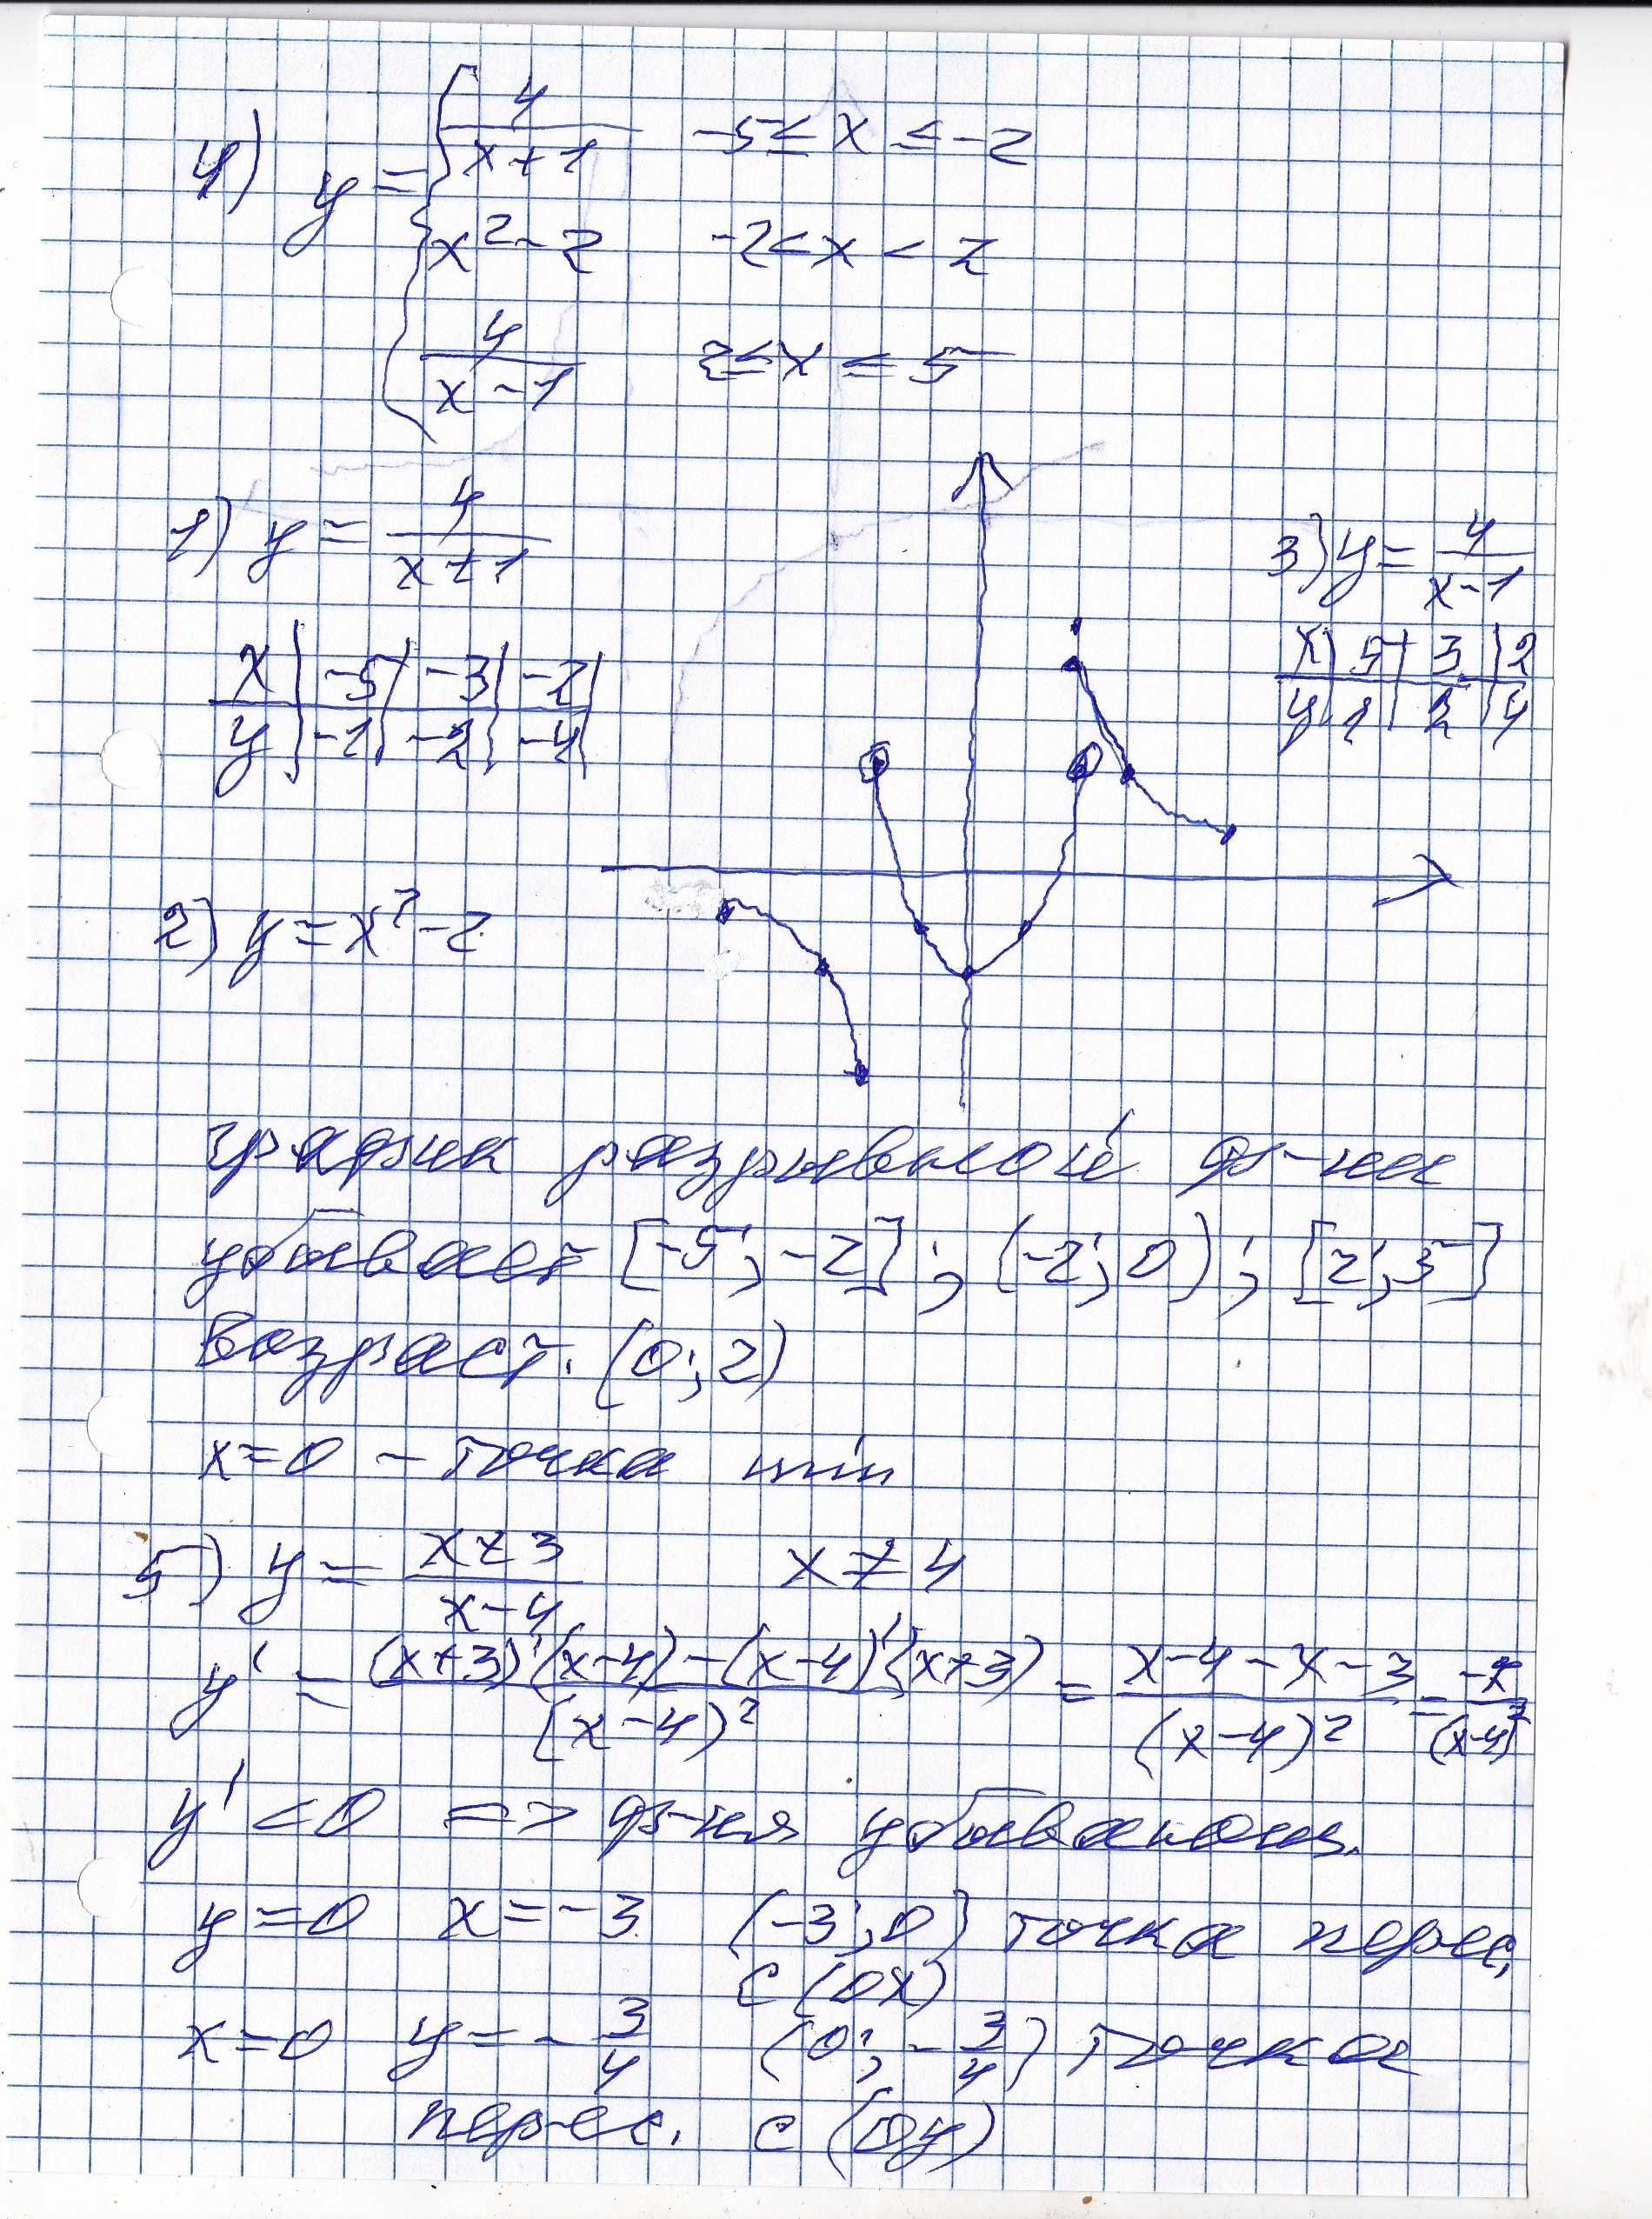 4) y = { 4/(x+1)   -5 ≤ x ≤ -2
x² - 2   -2 < x < 2
4/(x-1)   2 ≤ x ≤ 5
1) y = 4/(x+1)
x | -5 | -3 | -2 |
y | -1 | -2 | -4 |
3) y = 4/(x-1)
x | 5 | 3 | 2
y | 1 | 2 | 4
2) y = x² - 2
график разрывной ф-ции
убывает [-5; -2]; (-2; 0); [2; 5]
возраст. (0; 2)
x = 0 - точка min
5) y = (x+3)/(x-4)   x ≠ 4
y' = ((x+3)'(x-4) - (x-4)'(x+3))/(x-4)² = (x-4-x-3)/(x-4)² = -7/(x-4)²
y' < 0 => ф-ция убывающ.
y = 0   x = -3   (-3; 0) точка перес.
с (OX)
x = 0   y = -3/4   (0; -3/4) точка
перес. с (OY)